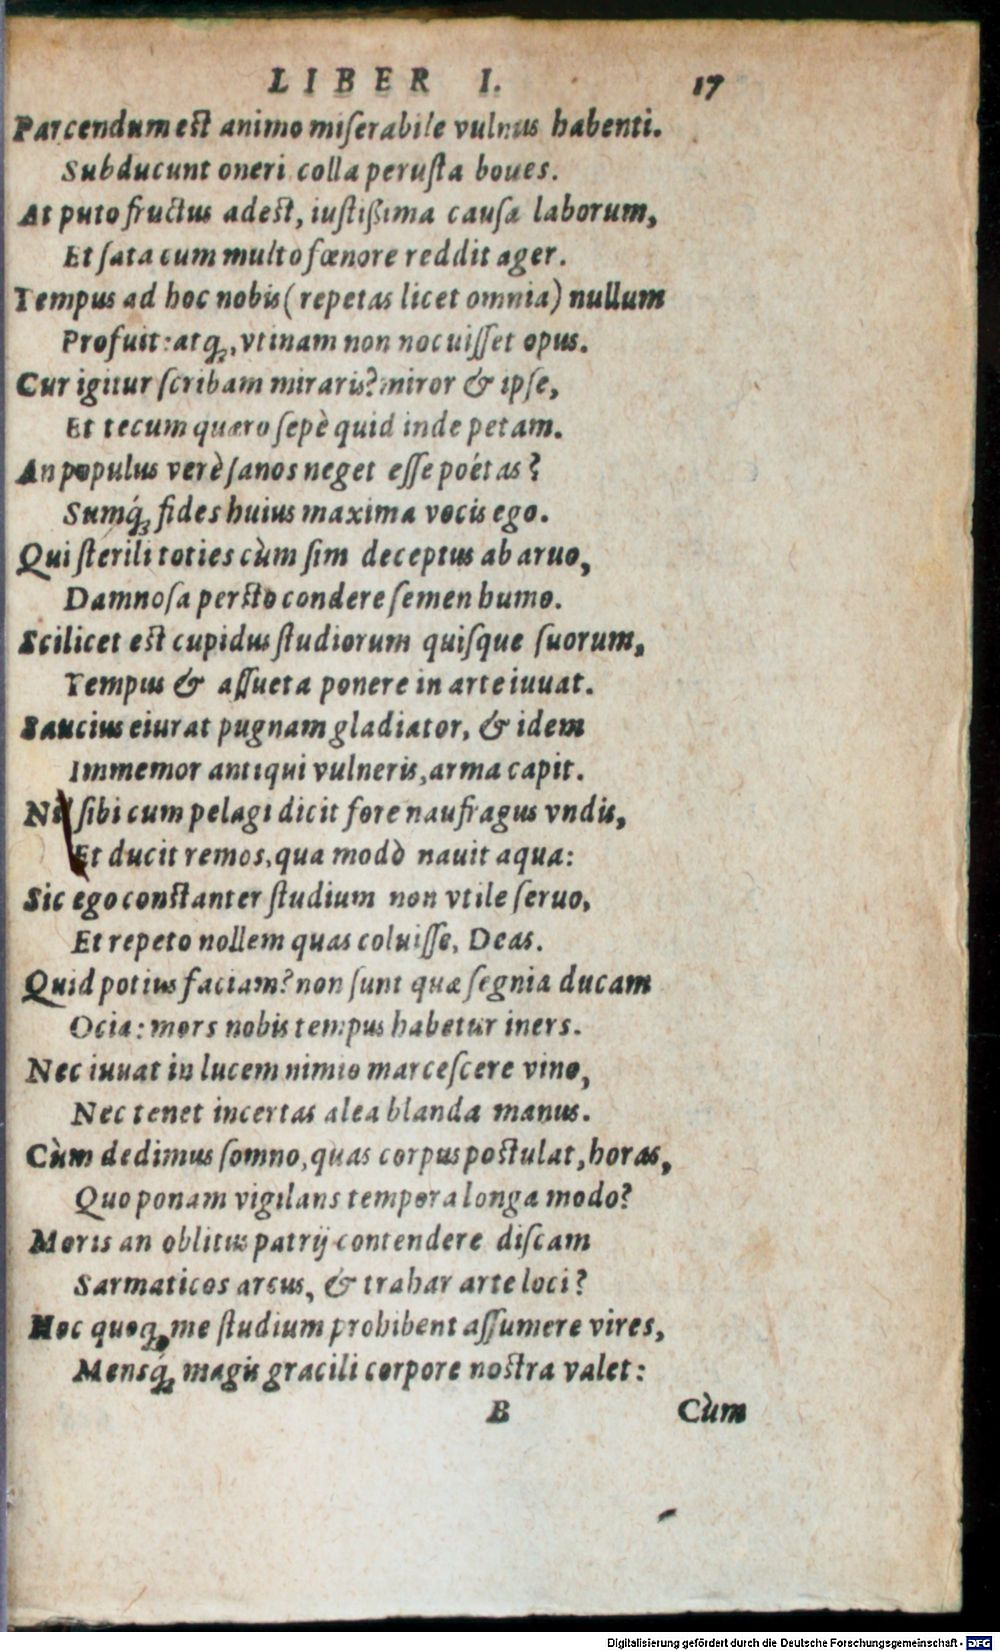 LIBER I. 17
Parcendum est animo miserabile vulnus habenti.
Subducunt oneri colla perusta boues.
At puto fructus adest, iustißima causa laborum,
Et sata cum multo fœnore reddit ager.
Tempus ad hoc nobis (repetas licet omnia) nullum
Profuit: atq;, vtinam non nocuisset opus.
Cur igitur scribam miraris? miror & ipse,
Et tecum quæro sepè quid inde petam.
An populus verè sanos neget esse poëtas?
Sumq́; fides huius maxima vocis ego.
Qui sterili toties cùm sim deceptus ab aruo,
Damnosa persto condere semen humo.
Scilicet est cupidus studiorum quisque suorum,
Tempus & assueta ponere in arte iuuat.
Saucius eiurat pugnam gladiator, & idem
Immemor antiqui vulneris, arma capit.
Nil sibi cum pelagi dicit fore naufragus vndis,
Et ducit remos, qua modò nauit aqua:
Sic ego constanter studium non vtile seruo,
Et repeto nollem quas coluisse, Deas.
Quid potius faciam? non sunt quæ segnia ducam
Ocia: mors nobis tempus habetur iners.
Nec iuuat in lucem nimio marcescere vino,
Nec tenet incertas alea blanda manus.
Cùm dedimus somno, quas corpus postulat, horas,
Quo ponam vigilans tempora longa modo?
Moris an oblitus patrij contendere discam
Sarmaticos arcus, & trahar arte loci?
Hoc quoq; me studium prohibent assumere vires,
Mensq́; magis gracili corpore nostra valet:
B Cùm
Digitalisierung gefördert durch die Deutsche Forschungsgemeinschaft - DFG